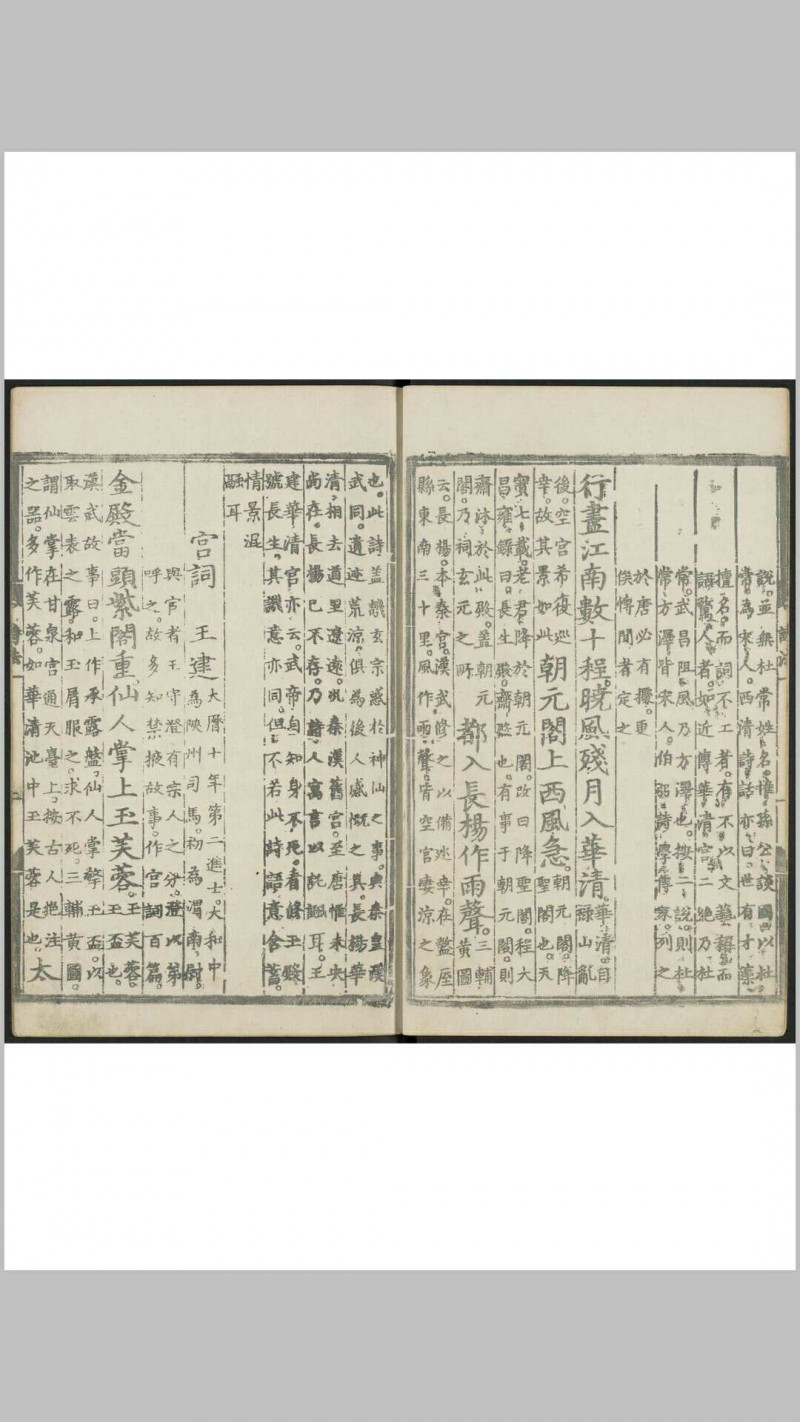 說。並無杜常姓名。惟孫公談圃以杜
常為宋人。西清詩話亦曰。世有才藻
擅名。而詞不工者。有不以文藝稱。而
語驚人者。如近傳華清宮二絕。乃杜
常。武昌阻風。乃方澤也。按二說。則杜
常方澤皆宋人。伯弜詩學傳家。列之
於唐必有據。更
俟博聞者定之
行盡江南數十程。曉風殘月入華清。華清。自
祿山亂
後。空宮希復巡
幸。故其景如此
朝元閣上西風急。朝元閣。降
聖閣也。天
寶七載。老君降於朝元閣。改曰降聖閣。程大
昌雍錄曰。長生殿。齋殿也。有事于朝元閣。則
齋沐於此殿。蓋朝元
閣。乃祠玄元之所
都入長楊作雨聲。三輔
黃圖
云。長楊。本秦宮。漢武修之以備巡幸。在盩厔
縣東南三十里。風作雨聲。皆空宮凄涼之象
也。此詩蓋譏玄宗惑於神仙之事。與秦皇漢
武同。遺迹荒涼。俱為後人感慨之具。長楊華
清。相去道里遼遠。況秦漢舊宮。至唐惟未央
尚存。長楊已不存。乃詩人寓言以託諷耳。王
建華清宮亦云。武帝自知身不死。看修玉殿
號長生。其譏意亦同。但不若此詩語意含蓄。
情景混
融耳
宮詞 王建
大曆十年第二進士。大和中
為陝州司馬。初為渭南尉。
與宦者王守澄有宗人之分。澄以弟
呼之。故多知禁掖故事。作宮詞百篇。
金殿當頭紫閣重。仙人掌上玉芙蓉。玉芙蓉。
玉盃也。
漢武故事曰。上作承露盤。仙人掌擎玉盃。以
取雲表之露。和玉屑服之。求不死。三輔黃圖。
謂仙掌在甘泉宮通天臺上。按古人挹注
之器。多作芙蓉。如華清池中玉芙蓉是也。
太